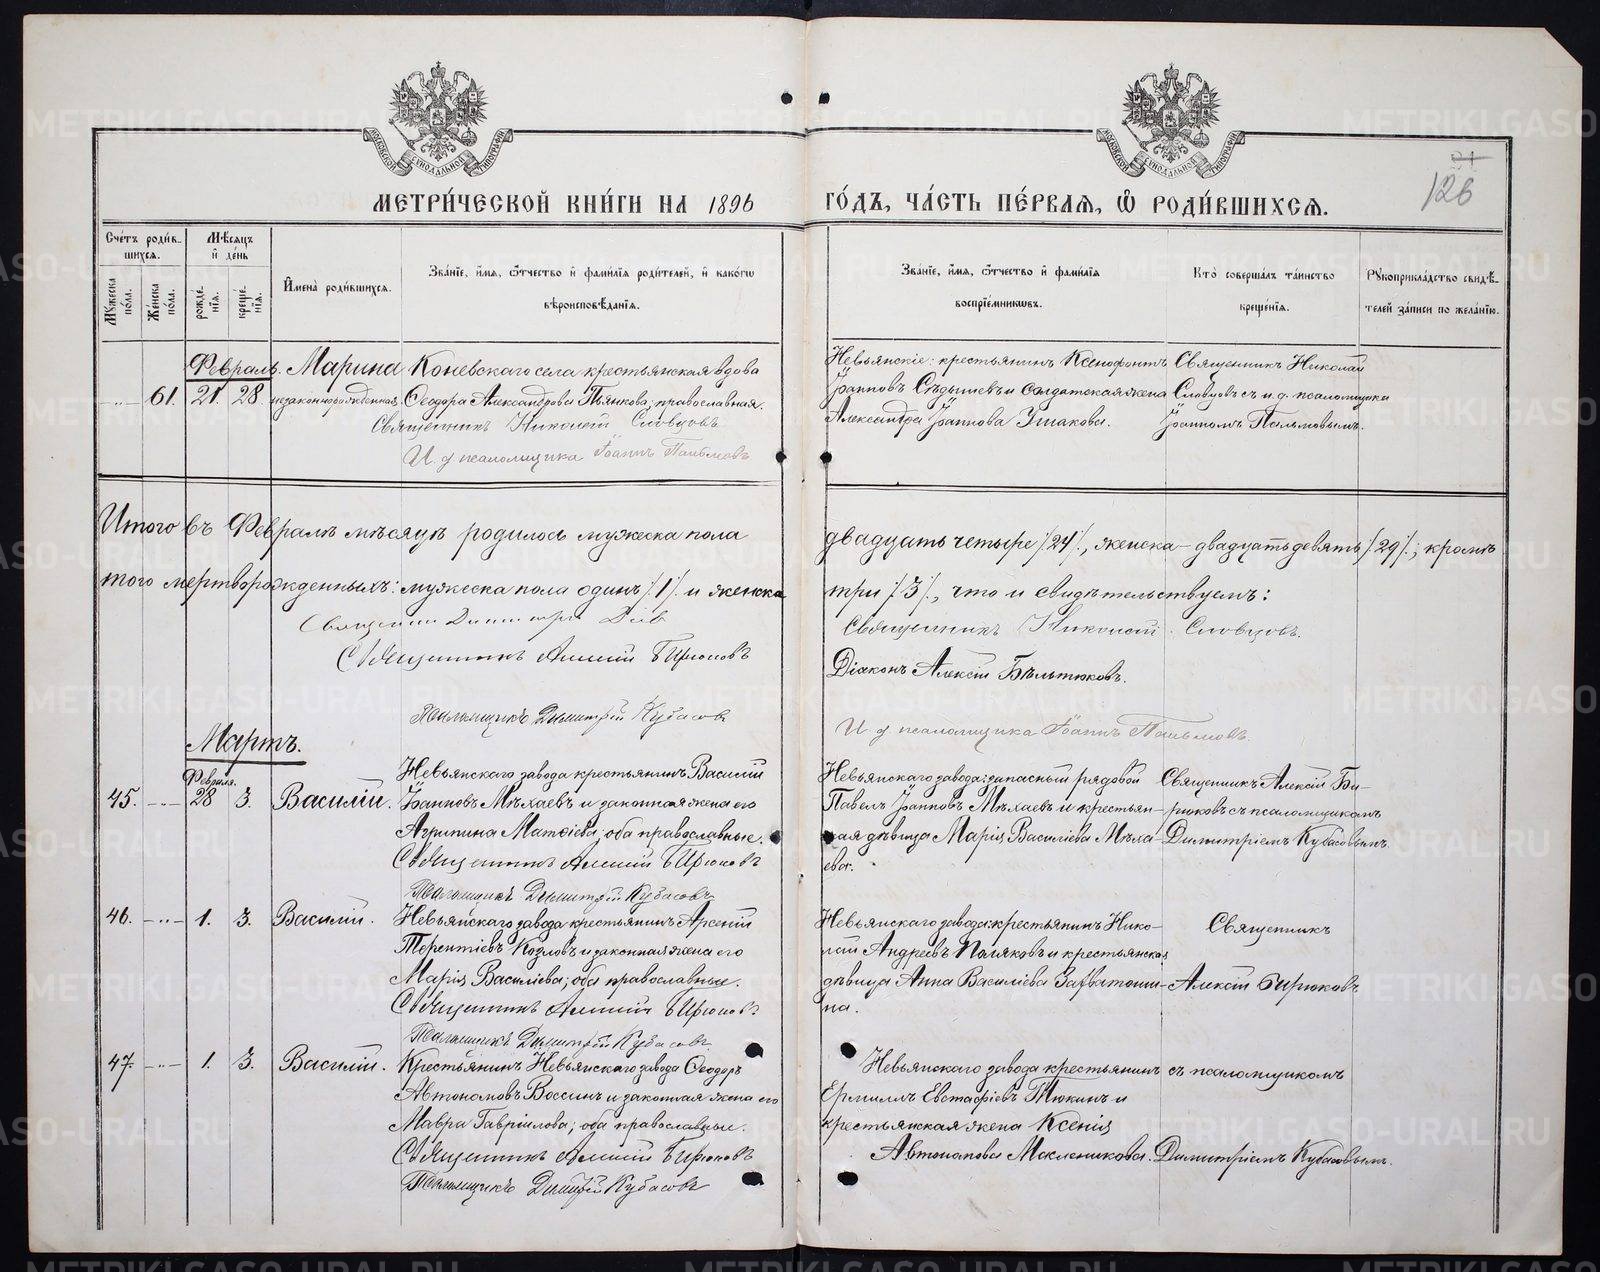 МЕТРИ́ЧЕСКОЙ КНИ́ГИ НА 1896 ГО́ДЪ, ЧА́СТЬ ПЕ́РВАЯ, Ѿ РОДИ́ВШИХСЯ.
126
Счетъ родив-
шихся.
Мѣсяцъ
и день
Мужеска
пола.
Женска
пола.
рожде-
нїя.
креще-
нїя.
Имена родившихся.
Званїе, имя, ѿтчество и фамилїя родителей, и какогѡ
вѣроисповѣданїя.
Званїе, имя, ѿтчество и фамилїя
воспрїемникѡвъ.
Кто совершалъ таинство
крещенїя.
Рукоприкладство свидѣ-
телей записи по желанїю.
Февраль.
61. 21. 28.
Марина
незаконнорожденная
Коневскаго села крестьянская вдова
Ѳеодора Александрова Пьянкова; православная.
Священникъ Николай Словцовъ
И. д псаломщика Іоаннъ Пальмовъ
Невьянскіе: крестьянинъ Ксенофонтъ
Іоанновъ Сѣдышевъ и солдатская жена
Александра Іоаннова Ушакова.
Священникъ Николай
Словцовъ съ и. д. псаломщика
Іоанномъ Пальмовымъ.
Итого въ Февралѣ мѣсяцѣ родилось мужеска пола двадцать четыре /.24/., женска - двадцать девять /.29/.; кромѣ
того мертворожденныхъ: мужеска пола одинъ /.1/. и женска три /.3/., что и свидѣтельствуемъ:
Священникъ Николай Словцовъ.
Священникъ Алексій Бирюковъ
Діаконъ Алексій Бѣльтюковъ.
Псаломщикъ Димитрій Кубасовъ
И. д псаломщика Іоаннъ Пальмовъ.
Мартъ.
Февраля.
45. 28 3. Василій.
Невьянскаго завода крестьянинъ Василій
Іоанновъ Мѣхаевъ и законная жена его
Агрипина Матѳіева; оба православные.
Священникъ Алексій Бирюковъ
Псаломщикъ Димитрій Кубасовъ
Невьянскаго завода: запасный рядовой
Павелъ Іоанновъ Мѣхаевъ и крестьян-
ская дѣвица Марія Василіева Мѣха-
ева.
Священникъ Алексій Би-
рюковъ съ псаломщикомъ
Димитріемъ Кубасовымъ.
46. 1. 3. Василій.
Невьянскаго завода крестьянинъ Арсеній
Терентіевъ Козловъ и законная жена его
Марія Василіева; оба православные.
Священникъ Алексій Бирюковъ
Псаломщикъ Димитрій Кубасовъ
Невьянскаго завода: крестьянинъ Нико-
лай Андреевъ Поляковъ и крестьянская
дѣвица Анна Василіева Захватоши-
на.
Священникъ
Алексій Бирюковъ
47. 1. 3. Василій.
Крестьянинъ Невьянскаго завода Ѳеодоръ
Автономовъ Воссинъ и законная жена его
Мавра Гавріилова; оба православные.
Священникъ Алексій Бирюковъ
Псаломщикъ Димитрій Кубасовъ
Невьянскаго завода крестьянинъ
Ермилъ Евстафіевъ Тюкинъ и
крестьянская жена Ксенія
Автономова Маслениковa.
съ псаломщикомъ
Димитріемъ Кубасовымъ.
METRIKI.GASO-URAL.RU